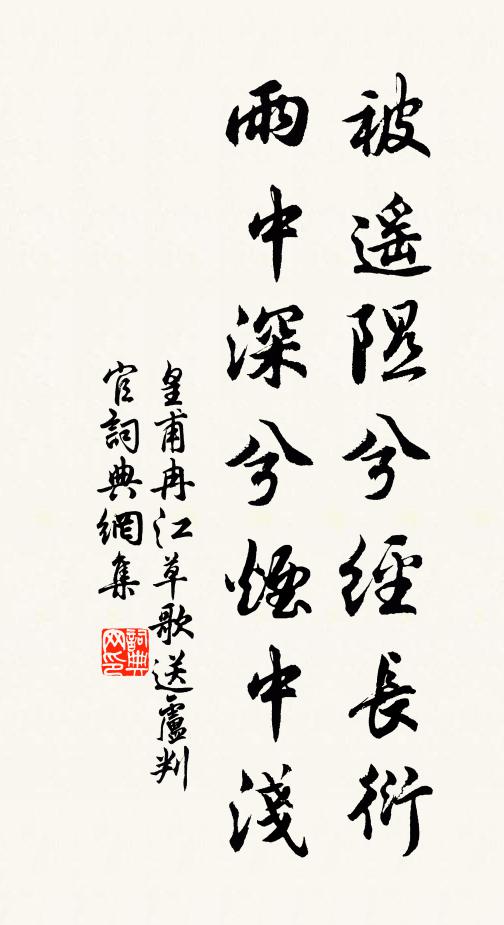 被遥隰兮經長衍
雨中深兮煙中淺
皇甫冉江草歌送盧判
官詞典網集
詞典网印